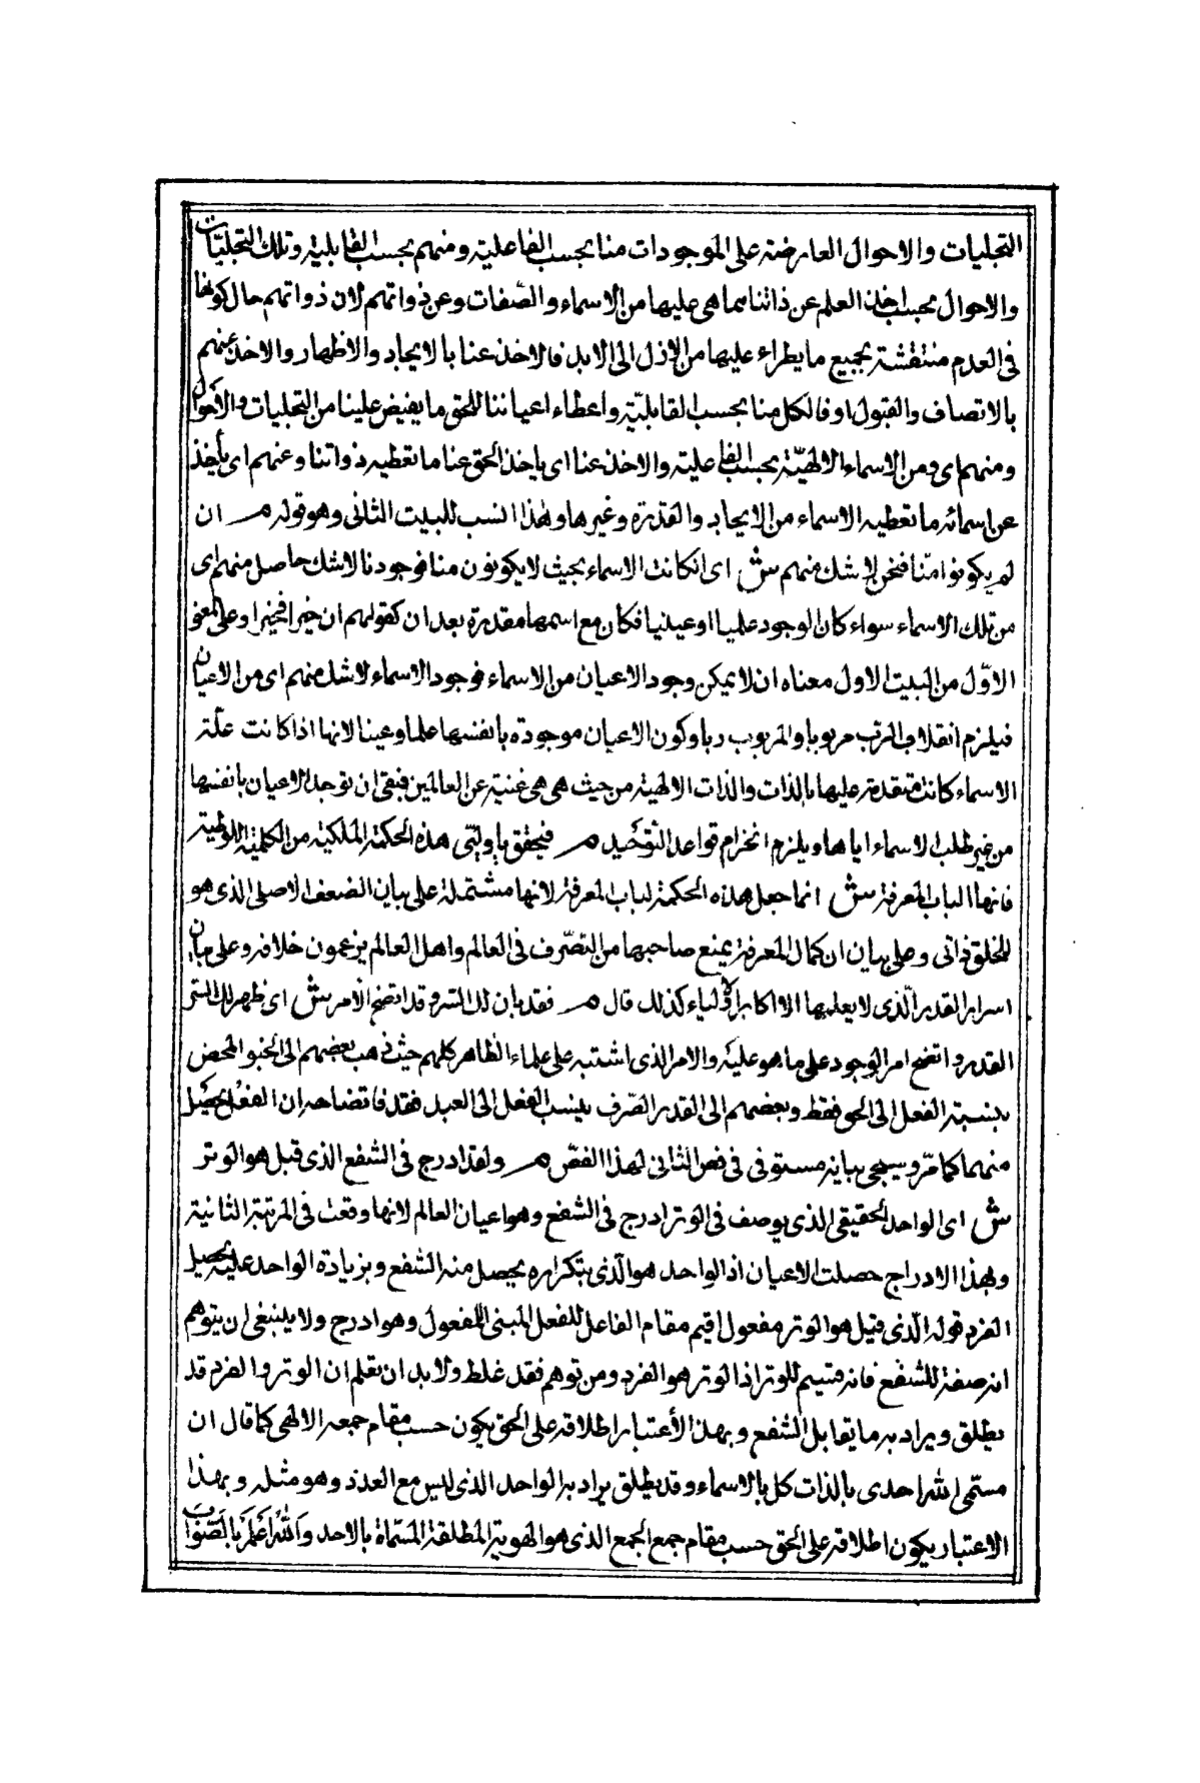 التجليات والاحوال العارضة على الموجودات منا بحسب الفاعلية ومنهم بحسب القابلية وتلك التجليات
والاحوال بحسب اخذ العلم عن ذاتنا بما هى عليها من الاسماء والصفات وعن ذواتهم لان ذواتهم حال كونها
فى العدم منتقشة بجميع ما يطراء عليها من الازل الى الابد فالاخذ عنا بالايجاد والاظهار والاخذ عنهم
بالاتصاف والقبول او فالكل منا بحسب القابلية واعطاء اعياننا للحق ما يفيض علينا من التجليات والاحوال
ومنهم اى ومن الاسماء الالهيّة بحسب الفاعلية والاخذ عنا اى ياخذ الحق عنا ما تعطيه ذواتنا وعنهم اى يأخذ
عن اسمائه ما تعطيه الاسماء من الايجاد والقدرة وغيرها وهذا انسب للبيت الثانى وهو قوله م ان
لم يكونوا منّا فنحن لا شك منهم ش اى انكانت الاسماء بحيث لا يكونون منا فوجودنا لا شك حاصل منهم اى
من تلك الاسماء سواء كان الوجود علميا او عينيا فكان مع اسمها مقدرة بعد ان كقولهم ان خيرا فخيرا وعلى المعنى
الاوّل من البيت الاول معناه ان لا يمكن وجود الاعيان من الاسماء فوجود الاسماء لا شك منهم اى من الاعيان
فيلزم انقلاب الرب مربوبا والمربوب ربا وكون الاعيان موجودة بانفسها علما وعينا لانها اذا كانت علّة
الاسماء كانت متقدمة عليها بالذات والذات الالهية من حيث هى هى غنية عن العالمين فبقى ان توجد الاعيان بانفسها
من غير طلب الاسماء اياها ويلزم انخرام قواعد التوحيد م فيحقق يا وليّى هذه الحكمة الملكية من الكلمة اللوطية
فانها لباب المعرفة ش انما جعل هذه الحكمة لباب المعرفة لانها مشتملة على بيان الضعف الاصلى الذى هو
للخلق ذاتى وعلى بيان ان كمال المعرفة يمنع صاحبها من التصّرف فى العالم واهل العالم يزعمون خلافه وعلى بيان
اسرار القدر الّذى لا يعلمها الا اكابر الاولياء كذلك قال م فقد بان لك السر وقد اتضح الامر ش اى ظهر لك السّر
القدر واتضح امر الوجود على ما هو عليه والامر الذى اشتبه على علماء الظاهر كلهم حيث ذهب بعضهم الى الجبر المحض
بنسبة الفعل الى الحق فقط وبعضهم الى القدر الصّرف بنسب الفعل الى العبد فقد فاتضاحه ان الفعل يحصل
منهما كما مرّ وسيجى بيانه مستوفى فى فص الثانى لهذا الفصّ م ولقد ادرج فى الشفع الذى قيل هو الوتر
ش اى الواحد الحقيقى الذى يوصف فى الوتر ادرج فى الشفع وهو اعيان العالم لانها وقعت فى المرتبة الثانية
وبهذا الادراج حصلت الاعيان اذ الواحد هو الّذى بتكراره يحصل منه الشفع وبزيادة الواحد عليه يحصل
الفرد قوله الّذى قيل هو الوتر مفعول اقيم مقام الفاعل للفعل المبنى للمفعول وهو ادرج ولا ينبغى ان يتوهم
انه صفة للشفع فانه قسيم للوتر اذ الوتر هو الفرد ومن توهم فقد غلط ولا بد ان تعلم ان الوتر والفرد قد
يطلق ويراد به ما يقابل الشفع وبهذا الأعتبار اطلاقه على الحق يكون حسب مقام جمعه الالهى كما قال ان
مسمّى الله احدى بالذات كل بالاسماء وقد يطلق يراد به الواحد الذى ليس مع العدد وهو مثله وبهذا
الاعتبار يكون اطلاقه على الحق حسب مقام جمع الجمع الذى هو الهوية المطلقة المسّماة بالاحد والله اعلم بالصّواب